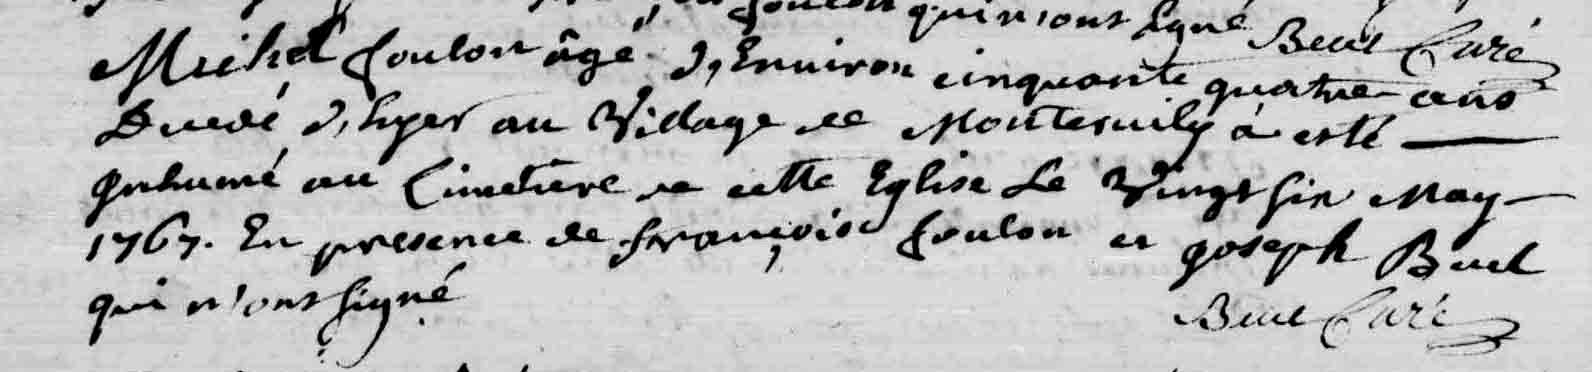 foulon qui n'ont signé Beul Curé
Michel foulon âgé d'Environ cinquante quatre ans
Decedé d'hyer au Village de à esté
Inhumé au Cimetiere de cette Eglise Le Vingt six May
1767. En presence de françois foulon et Joseph
qui n'ont signé
Curé